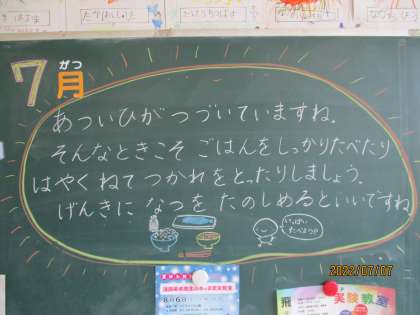 なかがわしゅり
がつ
7月
あついひが つづいていますね。
そんなときこそ ごはんをしっかりたべたり
はやく ねて つかれをとったりしましょう。
げんきに なつを たのしめるといいですね
いっぱい
たべようね
8月6日
実験教室
2022/07/07